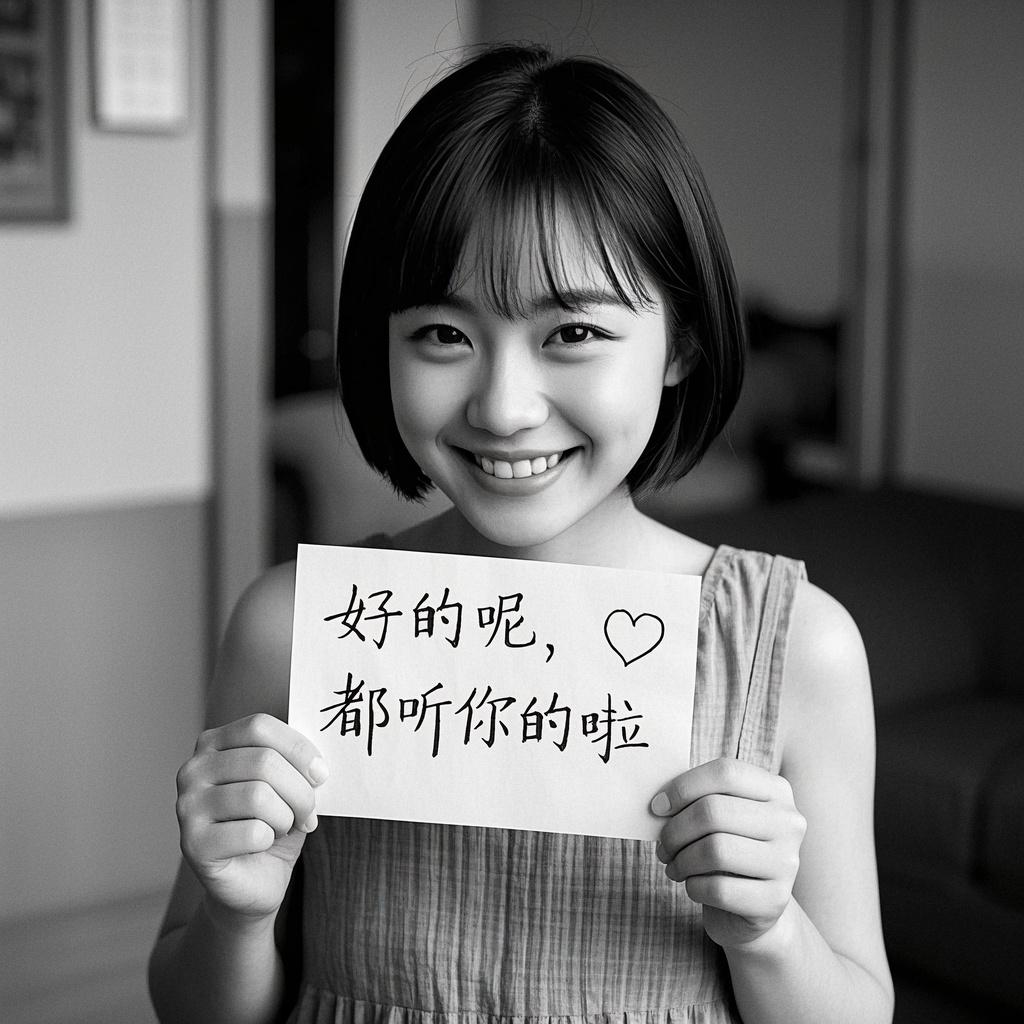 好的呢，
都听你的啦